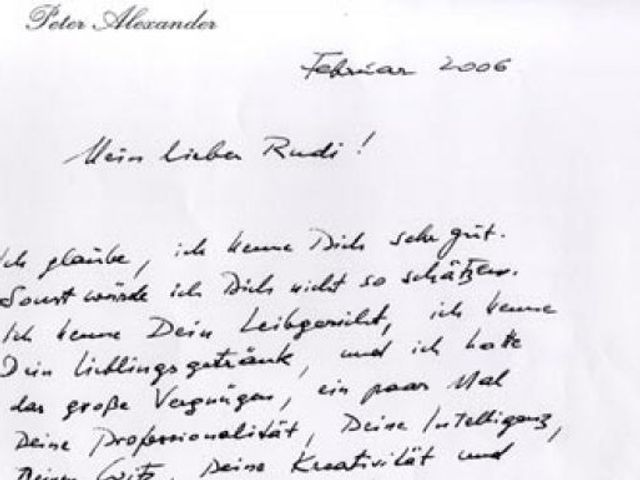 Peter Alexander
Februar 2006
Mein lieber Rudi!
Ich glaube, ich kenne Dich sehr gut.
Sonst würde ich Dich nicht so schätzen.
Ich kenne Dein Leibgericht, ich kenne
Dein Lieblingsgetränk, und ich hatte
das große Vergnügen, ein paar Mal
Deine Professionalität, Deine Intelligenz,
Deinen Witz, Deine Kreativität und